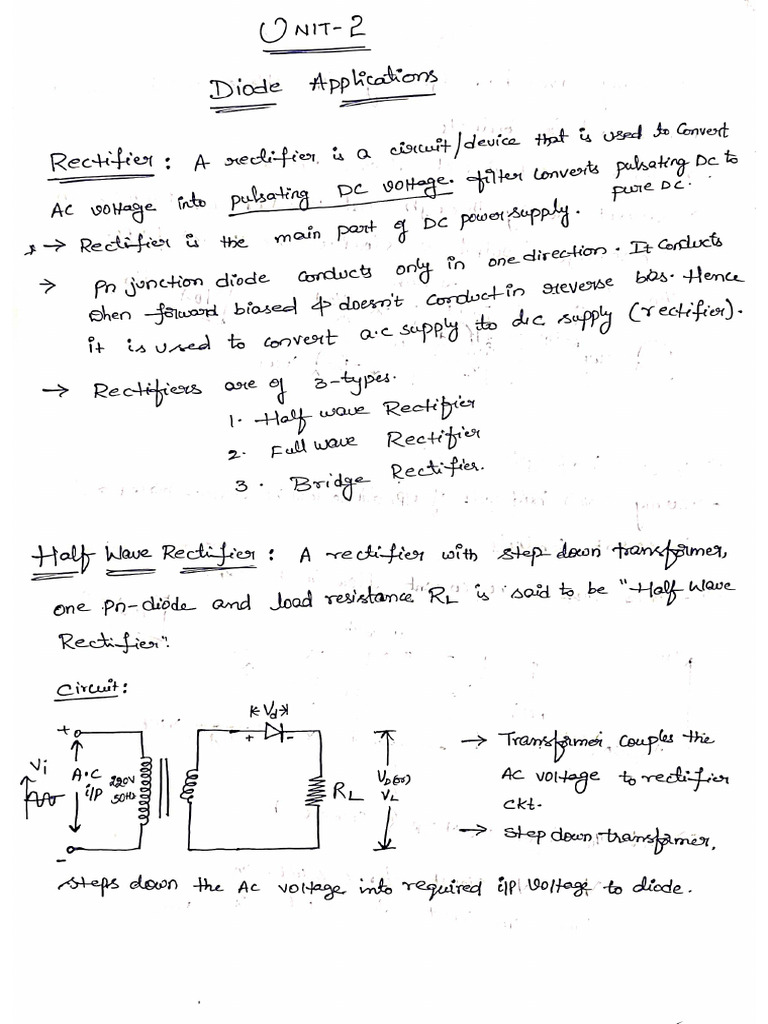 UNIT-2
Diode Applications
Rectifier: A rectifier is a circuit/device that is used to Convert
AC voltage into pulsating DC voltage. filter converts pulsating DC to
pure DC.
* → Rectifier is the main part of DC power supply.
→ pn junction diode conducts only in one direction. It conducts
when forward biased & doesn't conduct in reverse bias. Hence
it is used to convert a.c supply to d.c supply (rectifier).
→ Rectifiers are of 3-types.
1. Half wave Rectifier
2. Full wave Rectifier
3. Bridge Rectifier.
Half Wave Rectifier: A rectifier with step down transformer,
one pn-diode and load resistance RL is said to be "Half Wave
Rectifier".
Circuit:
Vd
+ -
+
Vi
A.C
i/p
220V
50Hz
-
RL
VO (or)
VL
→ Transformer couples the
AC voltage to rectifier
ckt.
→ step down transformer,
steps down the AC voltage into required i/p voltage to diode.